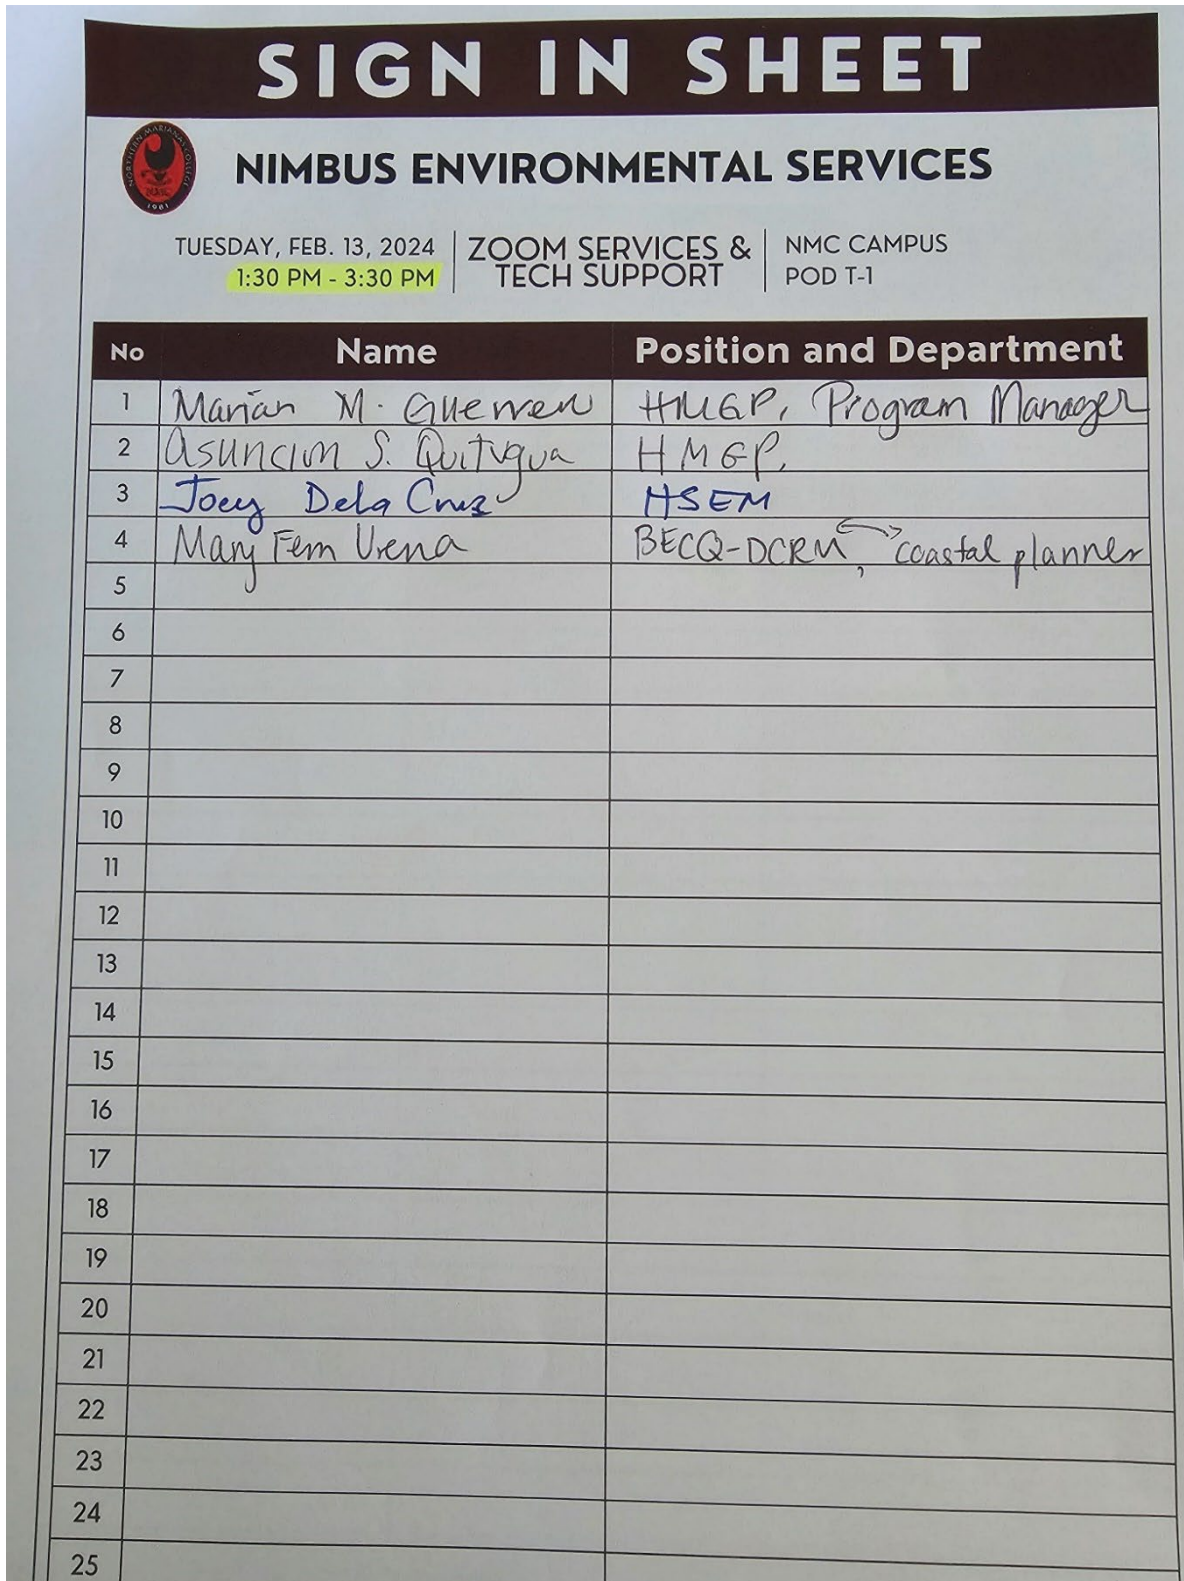 SIGN IN SHEET
NORTHERN MARIANAS COLLEGE
1981
NIMBUS ENVIRONMENTAL SERVICES
TUESDAY, FEB. 13, 2024
1:30 PM - 3:30 PM
ZOOM SERVICES &
TECH SUPPORT
NMC CAMPUS
POD T-1
No Name Position and Department
1 Marian M. HMGP, Program Manager
2 Asuncion S. Quitugua HMGP,
3 Joey Dela Cruz HSEM
4 Mary Fem Urena BECQ-DCRM, coastal planner
5
6
7
8
9
10
11
12
13
14
15
16
17
18
19
20
21
22
23
24
25